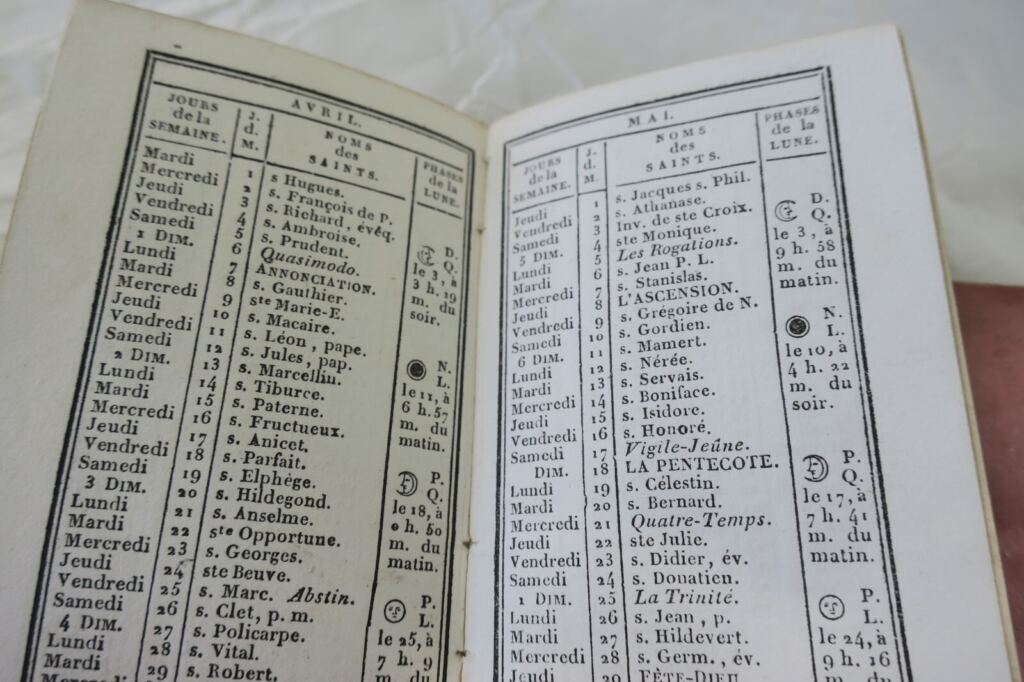 AVRIL.
JOURS de la SEMAINE. J. d. M. NOMS des SAINTS. PHASES de la LUNE.
Mardi 1 s Hugues.
Mercredi 2 s. François de P.
Jeudi 3 s. Richard, évêq.
Vendredi 4 s. Ambroise.
Samedi 5 s. Prudent.
1 DIM. 6 Quasimodo.
Lundi 7 ANNONCIATION.
Mardi 8 s. Gauthier.
Mercredi 9 ste Marie-E.
Jeudi 10 s. Macaire.
Vendredi 11 s. Léon, pape.
Samedi 12 s. Jules, pap.
2 DIM. 13 s. Marcellin.
Lundi 14 s. Tiburce.
Mardi 15 s. Paterne.
Mercredi 16 s. Fructueux.
Jeudi 17 s. Anicet.
Vendredi 18 s. Parfait.
Samedi 19 s. Elphège.
3 DIM. 20 s. Hildegond.
Lundi 21 s. Anselme.
Mardi 22 ste Opportune.
Mercredi 23 s. Georges.
Jeudi 24 ste Beuve.
Vendredi 25 s. Marc. Abstin.
Samedi 26 s. Clet, p. m
4 DIM. 27 s. Policarpe.
Lundi 28 s. Vital.
Mardi 29 s. Robert.
Mercredi
D.
Q.
le 3, à
3 h. 19
m. du
soir.
N.
L.
le 11, à
6 h. 57
m. du
matin.
P.
Q.
le 18, à
0 h. 50
m. du
matin.
P.
L.
le 25, à
7 h. 9
MAI.
JOURS de la SEMAINE. J. d. M. NOMS des SAINTS. PHASES de la LUNE.
Jeudi 1 s. Jacques s. Phil.
Vendredi 2 s. Athanase.
Samedi 3 Inv. de ste Croix.
5 DIM. 4 ste Monique.
Lundi 5 Les Rogations.
Mardi 6 s. Jean P. L.
Mercredi 7 s. Stanislas.
Jeudi 8 L'ASCENSION.
Vendredi 9 s. Grégoire de N.
Samedi 10 s. Gordien.
6 DIM. 11 s. Mamert.
Lundi 12 s. Nérée.
Mardi 13 s. Servais.
Mercredi 14 s. Boniface.
Jeudi 15 s. Isidore.
Vendredi 16 s. Honoré.
Samedi 17 Vigile-Jeûne.
DIM. 18 LA PENTECOTE.
Lundi 19 s. Célestin.
Mardi 20 s. Bernard.
Mercredi 21 Quatre-Temps.
Jeudi 22 ste Julie.
Vendredi 23 s. Didier, év.
Samedi 24 s. Donatien.
1 DIM. 25 La Trinité.
Lundi 26 s. Jean, p.
Mardi 27 s. Hildevert.
Mercredi 28 s. Germ., év.
Jeudi 29 FÊTE-DIEU
D.
Q.
le 3, à
9 h. 58
m. du
matin.
N.
L.
le 10, à
4 h. 22
m. du
soir.
P.
Q.
le 17, à
7 h. 41
m. du
matin.
P.
L.
le 24, à
9 h. 16
m. du